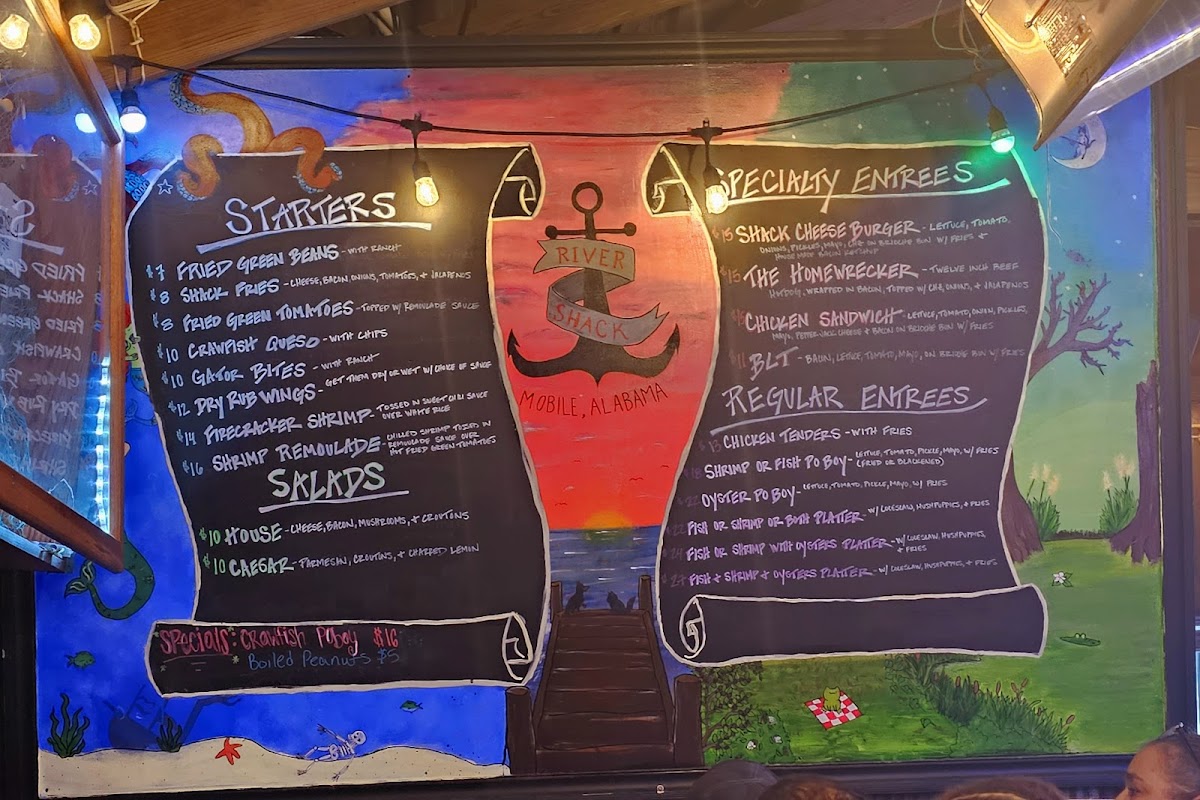 STARTERS
$7 FRIED GREEN BEANS - WITH RANCH
$8 SHACK FRIES - CHEESE, BACON, ONIONS, TOMATOES, + JALAPENOS
$8 FRIED GREEN TOMATOES - TOPPED W/ REMOULADE SAUCE
$10 CRAWFISH QUESO - WITH CHIPS
$10 GATOR BITES - WITH RANCH
$12 DRY RUB WINGS - GET THEM DRY OR WET W/ CHOICE OF SAUCE
$14 FIRECRACKER SHRIMP - TOSSED IN SWEET CHILI SAUCE
OVER WHITE RICE
$16 SHRIMP REMOULADE - CHILLED SHRIMP TOSSED IN
REMOULADE SAUCE OVER
HOT FRIED GREEN TOMATOES
SALADS
$10 HOUSE - CHEESE, BACON, MUSHROOMS, + CROUTONS
$10 CAESAR - PARMESAN, CROUTINS, + CHARRED LEMON
SPECIALS: CRAWFISH POBOY $16
Boiled Peanuts $5
RIVER
SHACK
MOBILE, ALABAMA
SPECIALTY ENTREES
$15 SHACK CHEESE BURGER - LETTUCE, TOMATO,
ONIONS, PICKLES, MAYO, ON BRIOCHE BUN W/ FRIES +
HOUSE MADE BACON KETCHUP
$15 THE HOMEWRECKER - TWELVE INCH BEEF
HOTDOG, WRAPPED IN BACON, TOPPED W/ CHILI, ONIONS, + JALAPENOS
CHICKEN SANDWICH - LETTUCE, TOMATO, ONION, PICKLES,
MAYO, PEPPER JACK CHEESE + BACON ON BRIOCHE BUN W/ FRIES
$11 BLT - BACON, LETTUCE, TOMATO, MAYO, ON BRIOCHE BUN W/ FRIES
REGULAR ENTREES
$13 CHICKEN TENDERS - WITH FRIES
SHRIMP OR FISH PO BOY - LETTUCE, TOMATO, PICKLE, MAYO, W/ FRIES
(FRIED OR BLACKENED)
$22 OYSTER PO BOY - LETTUCE, TOMATO, PICKLE, MAYO, W/ FRIES
$22 FISH OR SHRIMP OR BOTH PLATTER - W/ COLESLAW, HUSHPUPPIES, + FRIES
$24 FISH OR SHRIMP WITH OYSTERS PLATTER - W/ COLESLAW, HUSHPUPPIES,
+ FRIES
$27 FISH + SHRIMP + OYSTERS PLATTER - W/ COLESLAW, HUSHPUPPIES, + FRIES